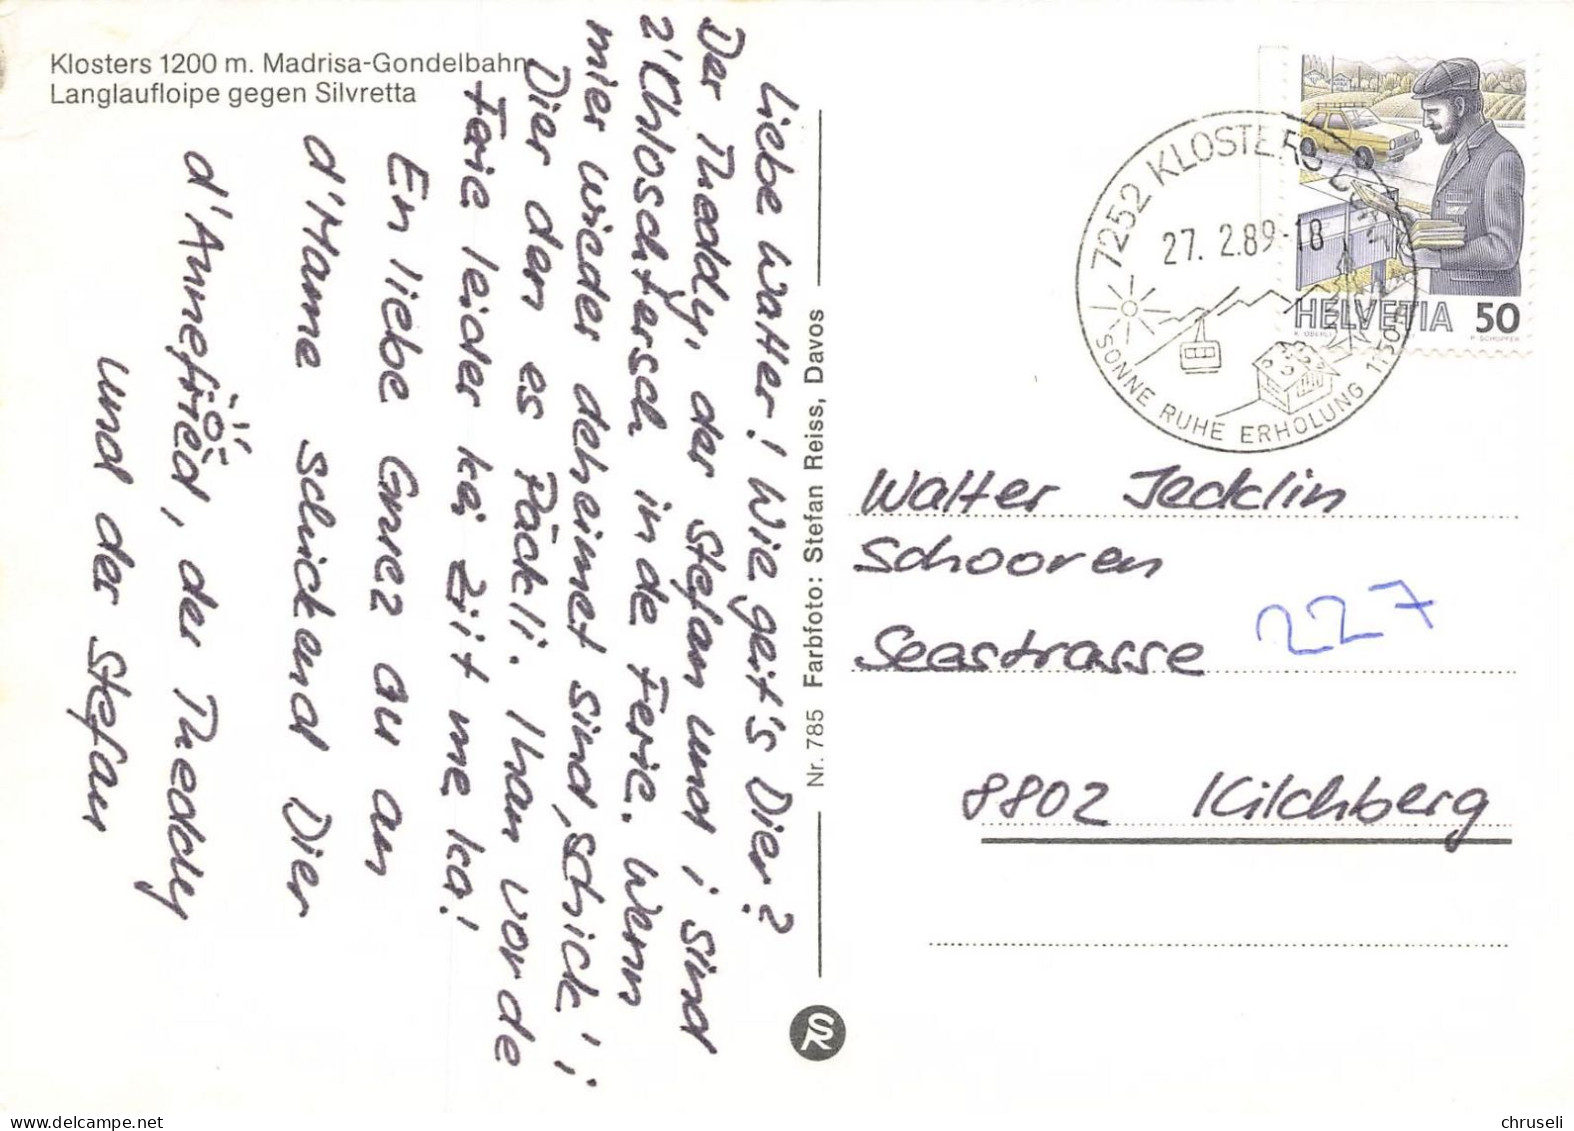 Klosters 1200 m. Madrisa-Gondelbahn
Langlaufloipe gegen Silvretta
Liebe Walter! Wie geit's Dier?
Der Theddy, der Stefan und i sind
z'Chloschtersch in de Ferie. Wenn
mier wieder deheimet sind, schick' i
Dier den es Päckli. I han vor de
Ferie leider kä Ziit me ka!
En liebe Gruez au an
d'Mame schickend Dier
d'Annefried, der Theddy
und der Stefan
Nr. 785 Farbfoto: Stefan Reiss, Davos
SR
7252 KLOSTERS
27. 2.89-18
SONNE RUHE ERHOLUNG
HELVETIA 50
K. OBERLI
P. SCHOPFER
Walter Jecklin
Schooren
Seestrasse 227
8802 Kilchberg
chruseli